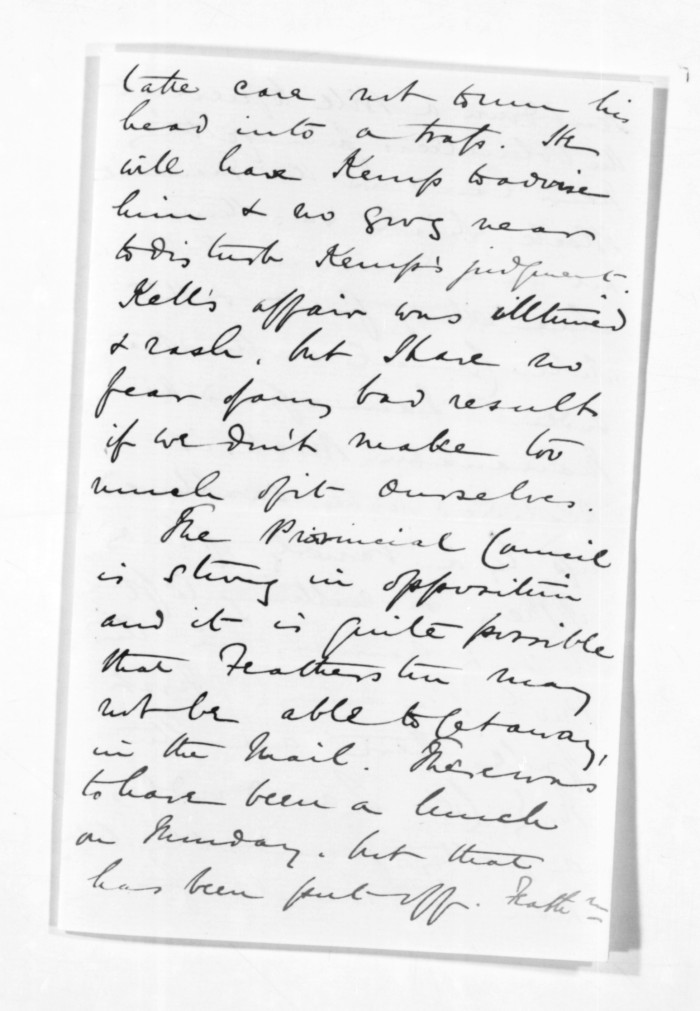 take care not to run his
head into a trap. He
will have Kemp to advise
him & no Grey near
to disturb Kemp's judgment.
Kell's affair was illtimed
& rash, but I have no
fear of any bad results
if we don't make too
much of it ourselves.
The Provincial Council
is strong in opposition
and it is quite possible
that Featherston may
not be able to get away,
in the Mail. There was
to have been a lunch
on Monday, but that
has been put off. Feathn